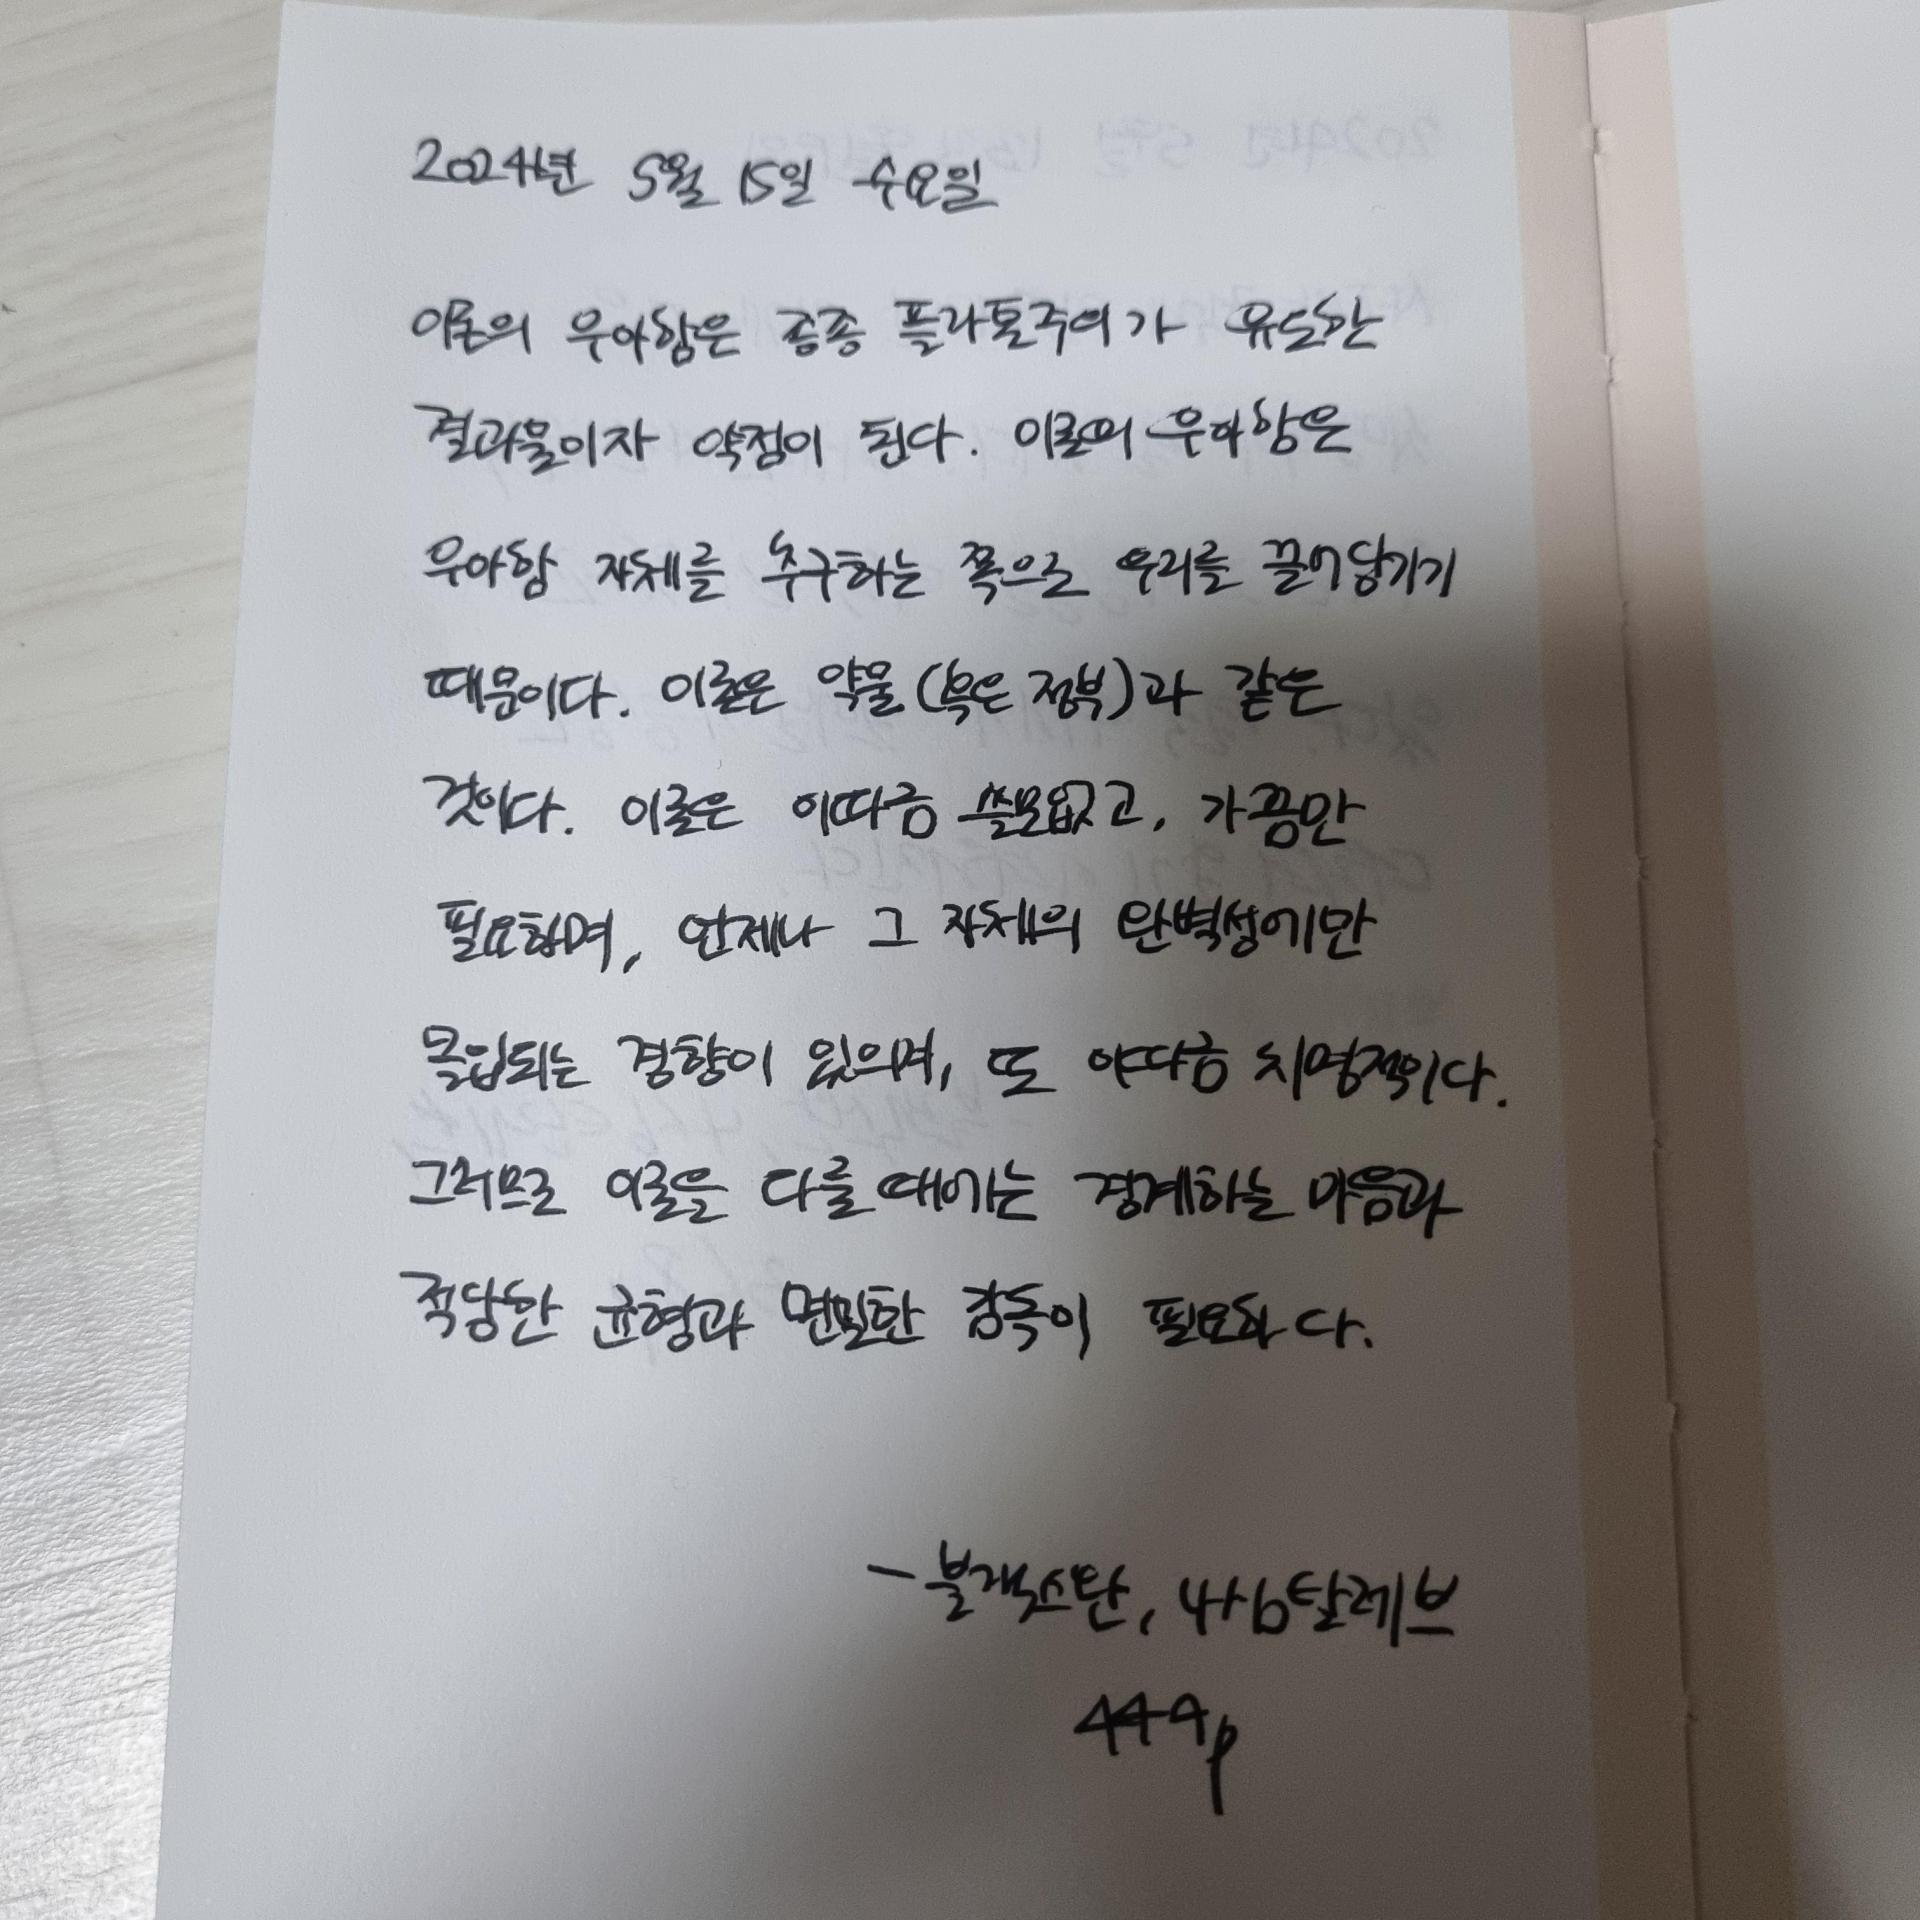 2024년 5월 15일 수요일
이론의 우아함은 종종 플라톤주의가 유도한
결과물이자 약점이 된다. 이론의 우아함은
우아함 자체를 추구하는 쪽으로 우리를 끌어당기기
때문이다. 이론은 약물(혹은 정부)과 같은
것이다. 이론은 이따금 쓸모없고, 가끔만
필요하며, 언제나 그 자체의 완벽성에만
몰입되는 경향이 있으며, 또 이따금 치명적이다.
그러므로 이론을 다룰 때에는 경계하는 마음과
적당한 균형과 면밀한 감독이 필요하다.
- 블랙스완, 나심탈레브
449p